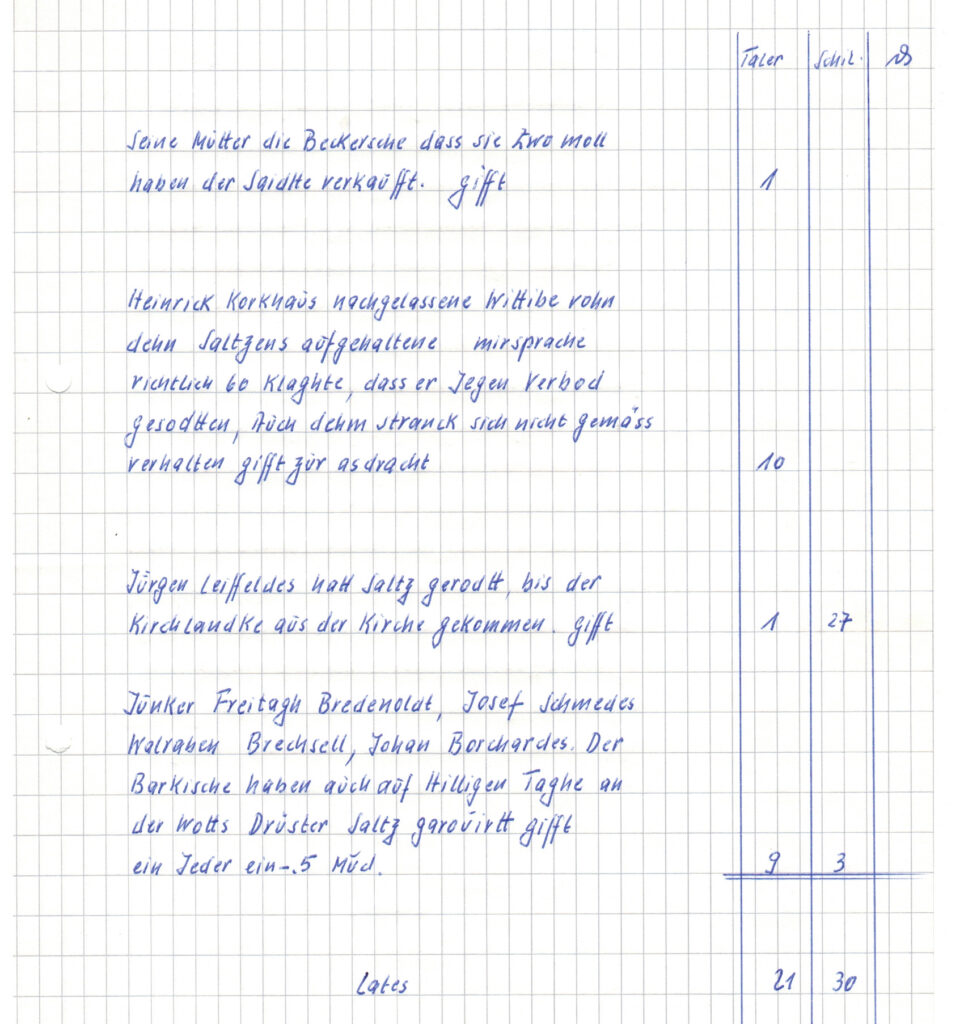 Taler Schil. ₰
Seine Mutter die Beckersche dass sie Zwo moll
haben der Saidtte verkaufft. gifft 1
Heinrick Korkhaus nachgelassene Wittibe vohn
dehn Saltzens aufgehaltene mirsprache
richtlich bo Klaghte, dass er Jegen Verbod
gesodtten, Auch dehm stranck sich nicht gemäss
verhalten gifft zur asdracht 10
Jürgen Leiffeldes hatt Saltz gerodtt, bis der
Kirchlandke aus der Kirche gekommen. gifft 1 27
Junker Freitagh Bredenoldt, Josef Schmedes
Walraben Brechsell, Johan Borchardes. Der
Barkische haben auch auf Hilligen Taghe an
der Wotts Druster Saltz garouirtt gifft
ein Jeder ein-.5 Müd. 9 3
Lates 21 30